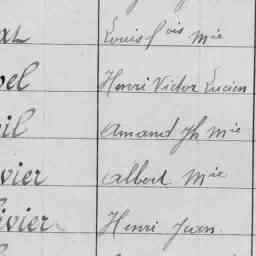 Louis fois Mie
bel Henri Victor Lucien
il Amand Jh Mie
vier Albert Mie
ivier Henri Jean